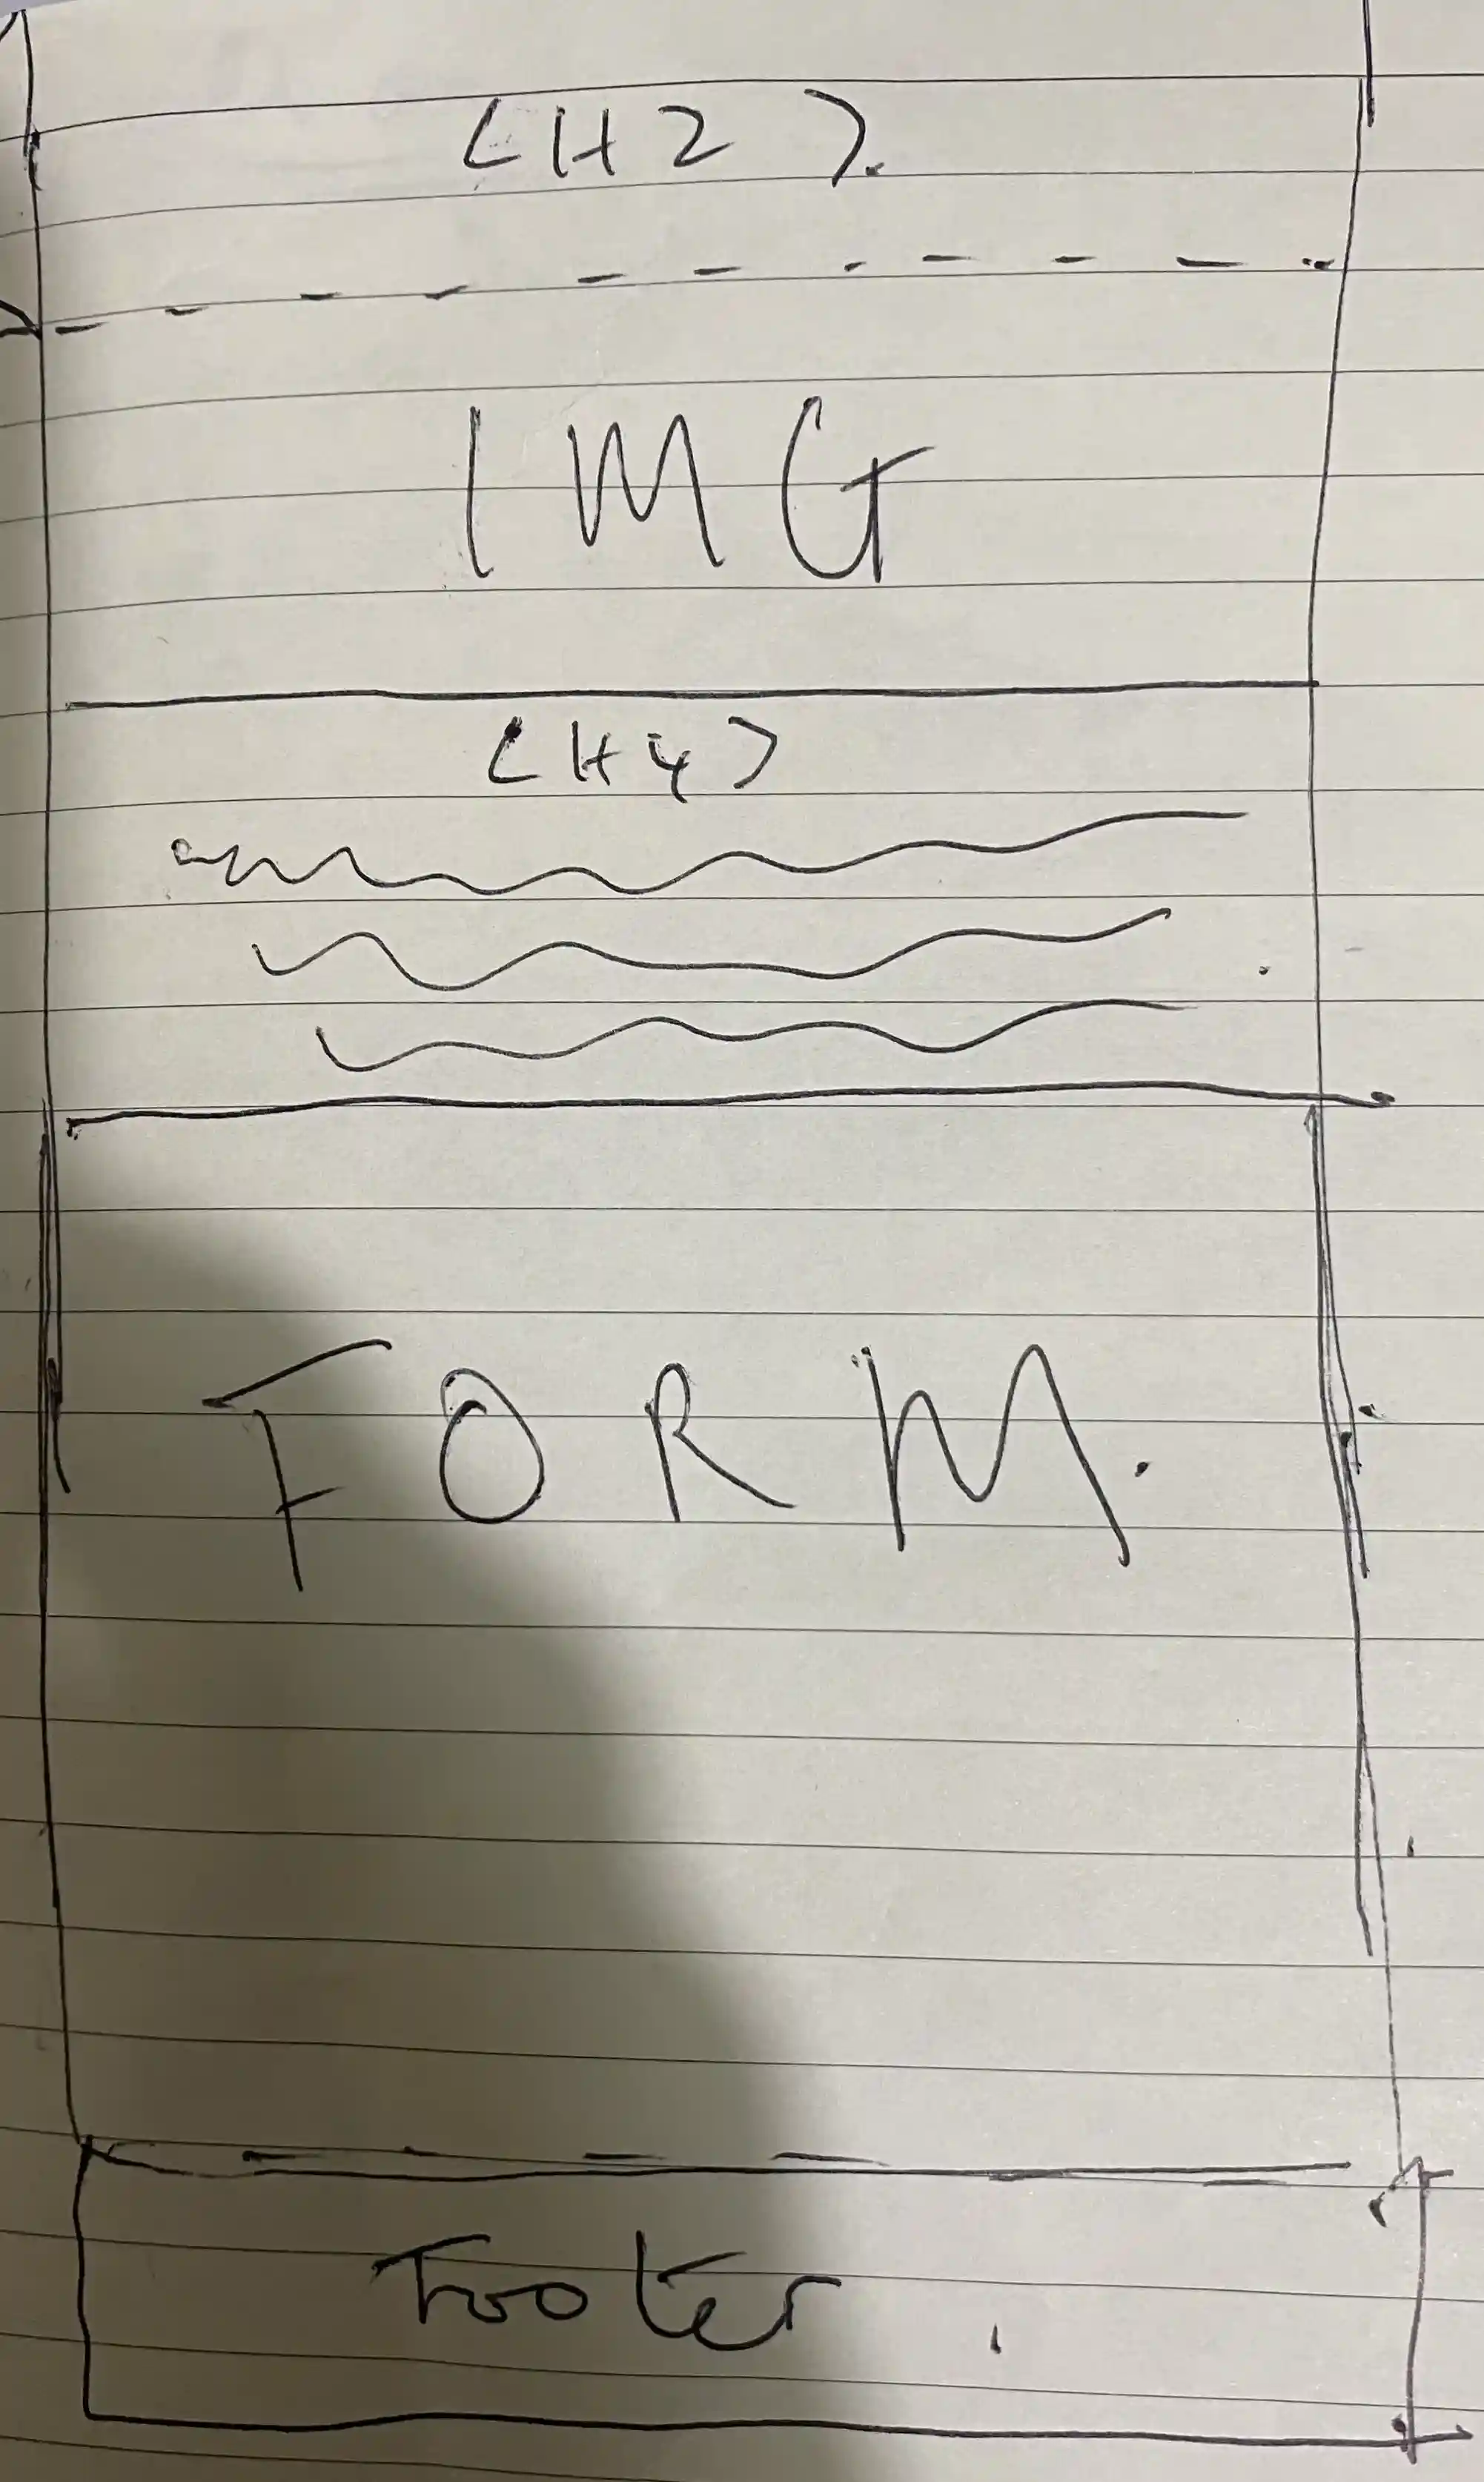 <H2>.
IMG
<H4>
FORM.
Footer